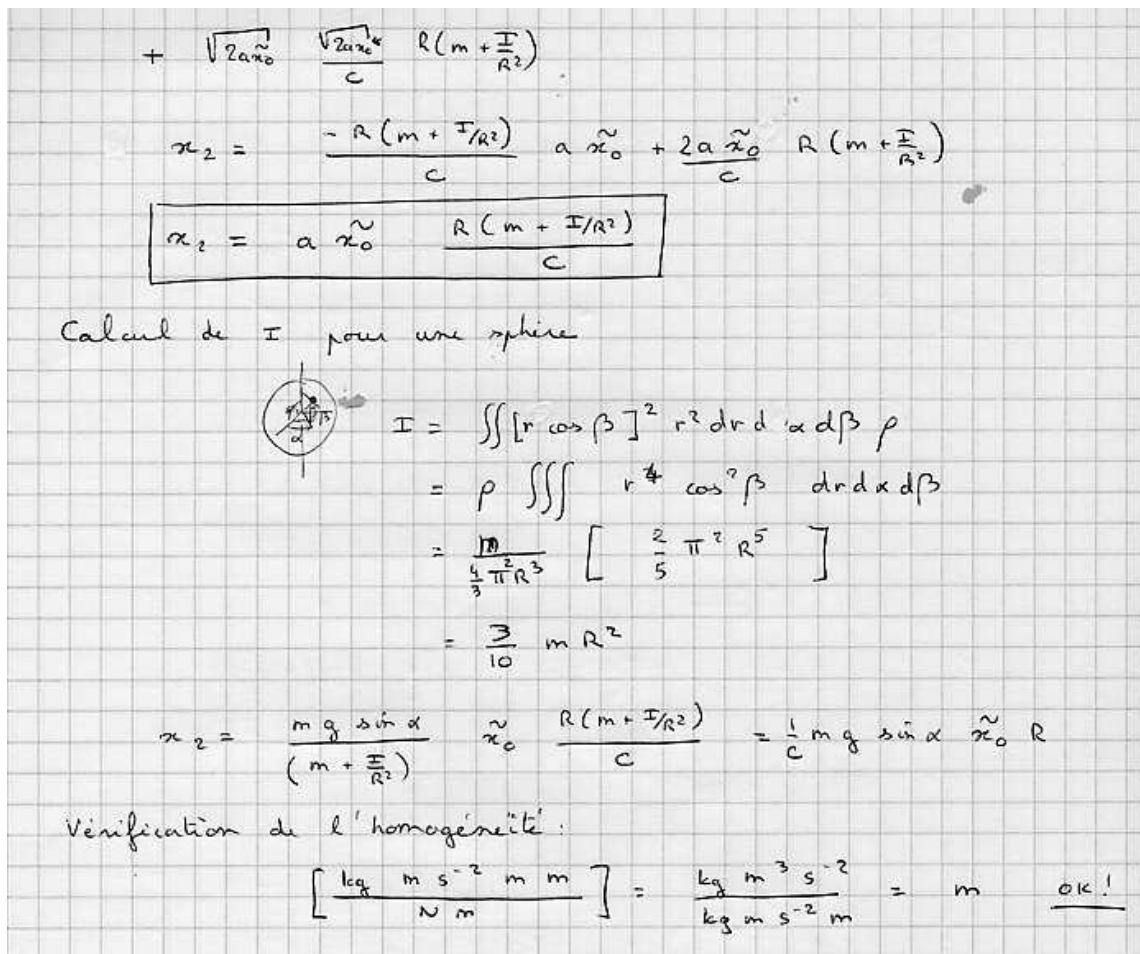 + √(2a x̃₀) √(2a x̃₀)/C R(m + I/R²)
x₂ = - R (m + I/R²)/C a x̃₀ + 2a x̃₀/C R (m + I/R²)
x₂ = a x̃₀ R (m + I/R²)/C
Calcul de I pour une sphère
α β
I = ∬ [r cos β]² r² dr d α dβ ρ
= ρ ∭ r⁴ cos² β dr dα dβ
= m/(4/3 π² R³) [ 2/5 π² R⁵ ]
= 3/10 m R²
x₂ = m g sin α/(m + I/R²) x̃₀ R (m + I/R²)/C = 1/C m g sin α x̃₀ R
Vérification de l'homogénéité :
[ kg m s⁻² m m / N m ] = kg m³ s⁻² / kg m s⁻² m = m OK !